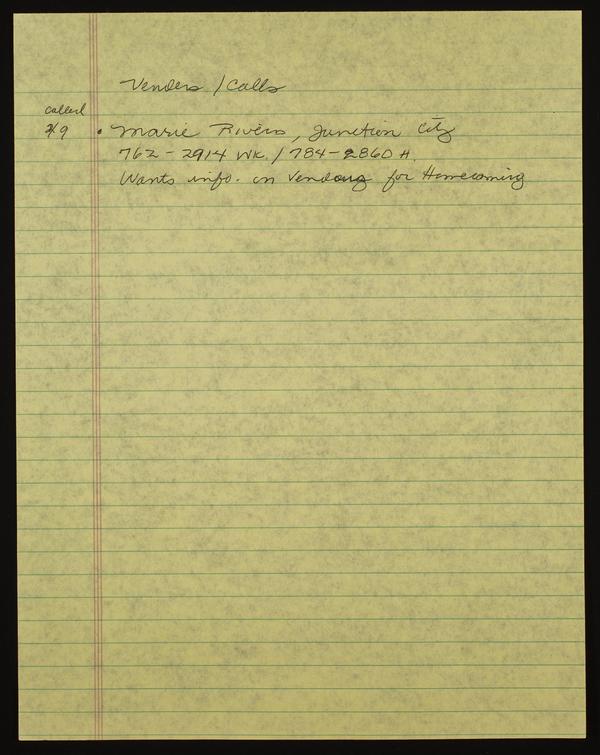 Venders / Calls
called
2/9 • Marie Rivers, Junction City
762-2914 WK. / 784-2860 H.
Wants info. on Vending for Homecoming